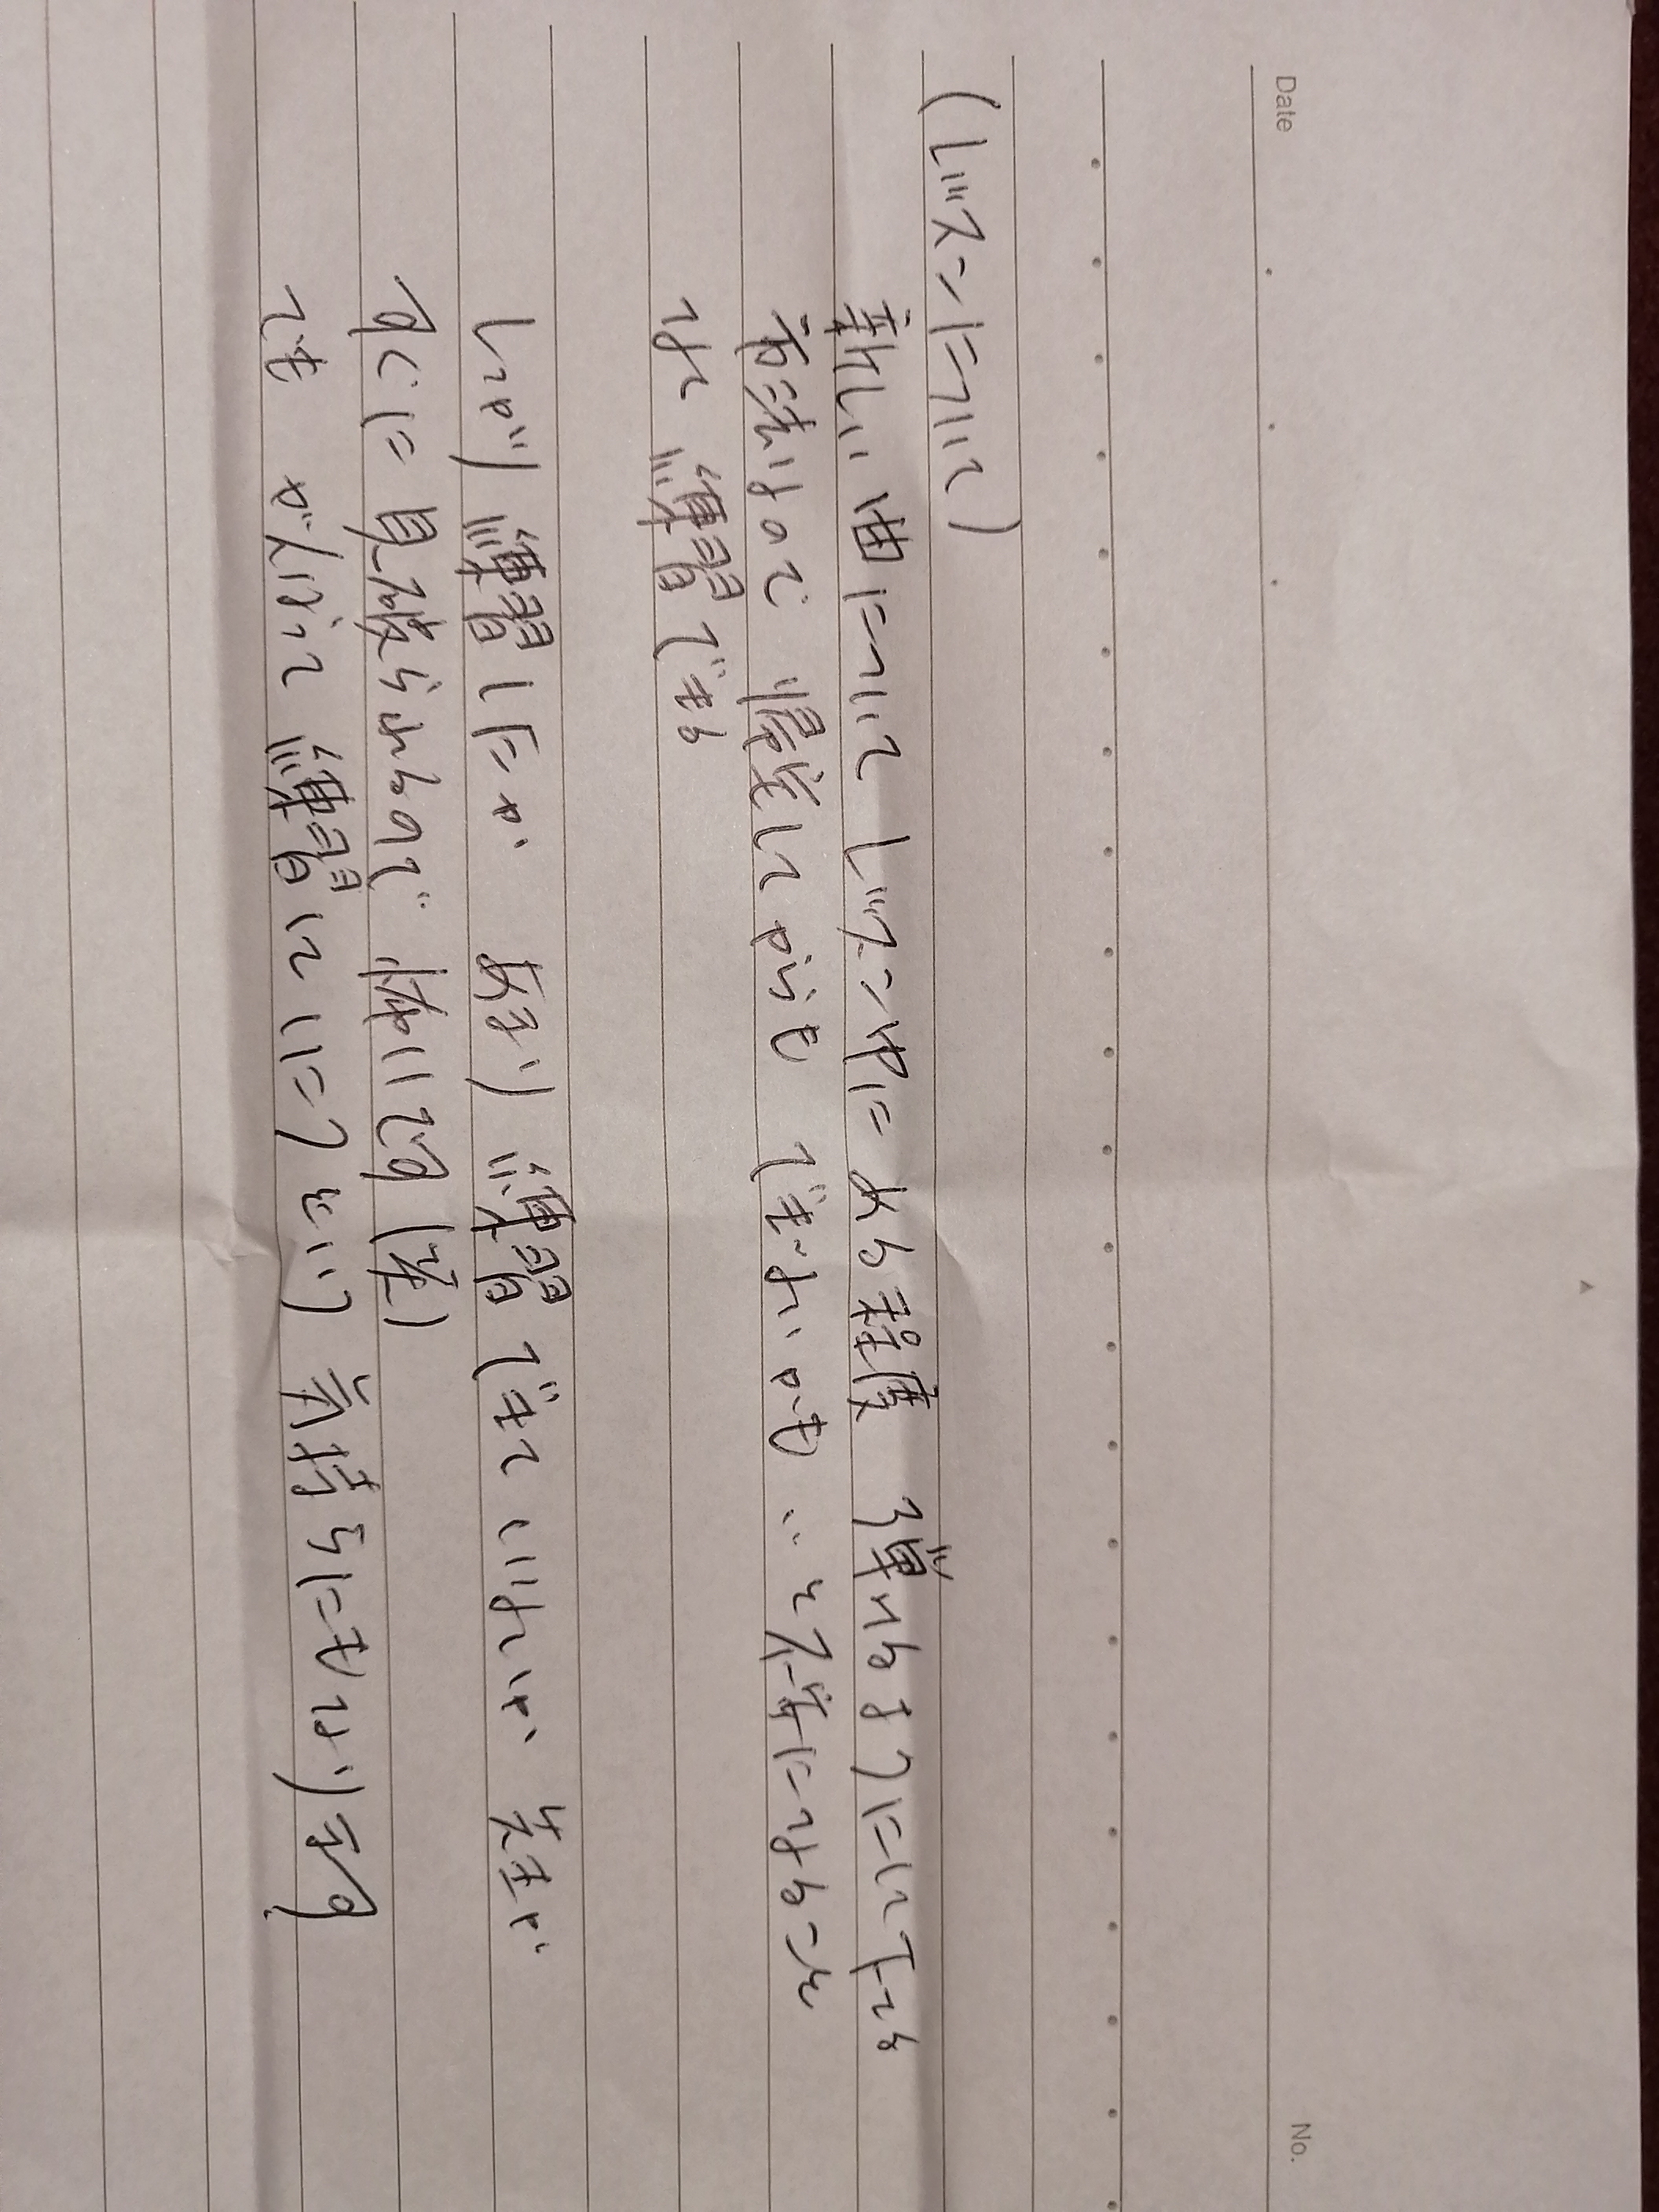 Date
No.
(レッスンについて)
新しい曲について レッスン中に ある程度 弾けるようにして下さる
方法なので 帰宅してからも できないかも…とブルーになること
なく 練習できる
しっかり 練習したか あまり 練習できていないか 先生が
すぐに 見破られるので 怖いです(笑)
でも がんばって 練習していこうという 気持ちにもなります